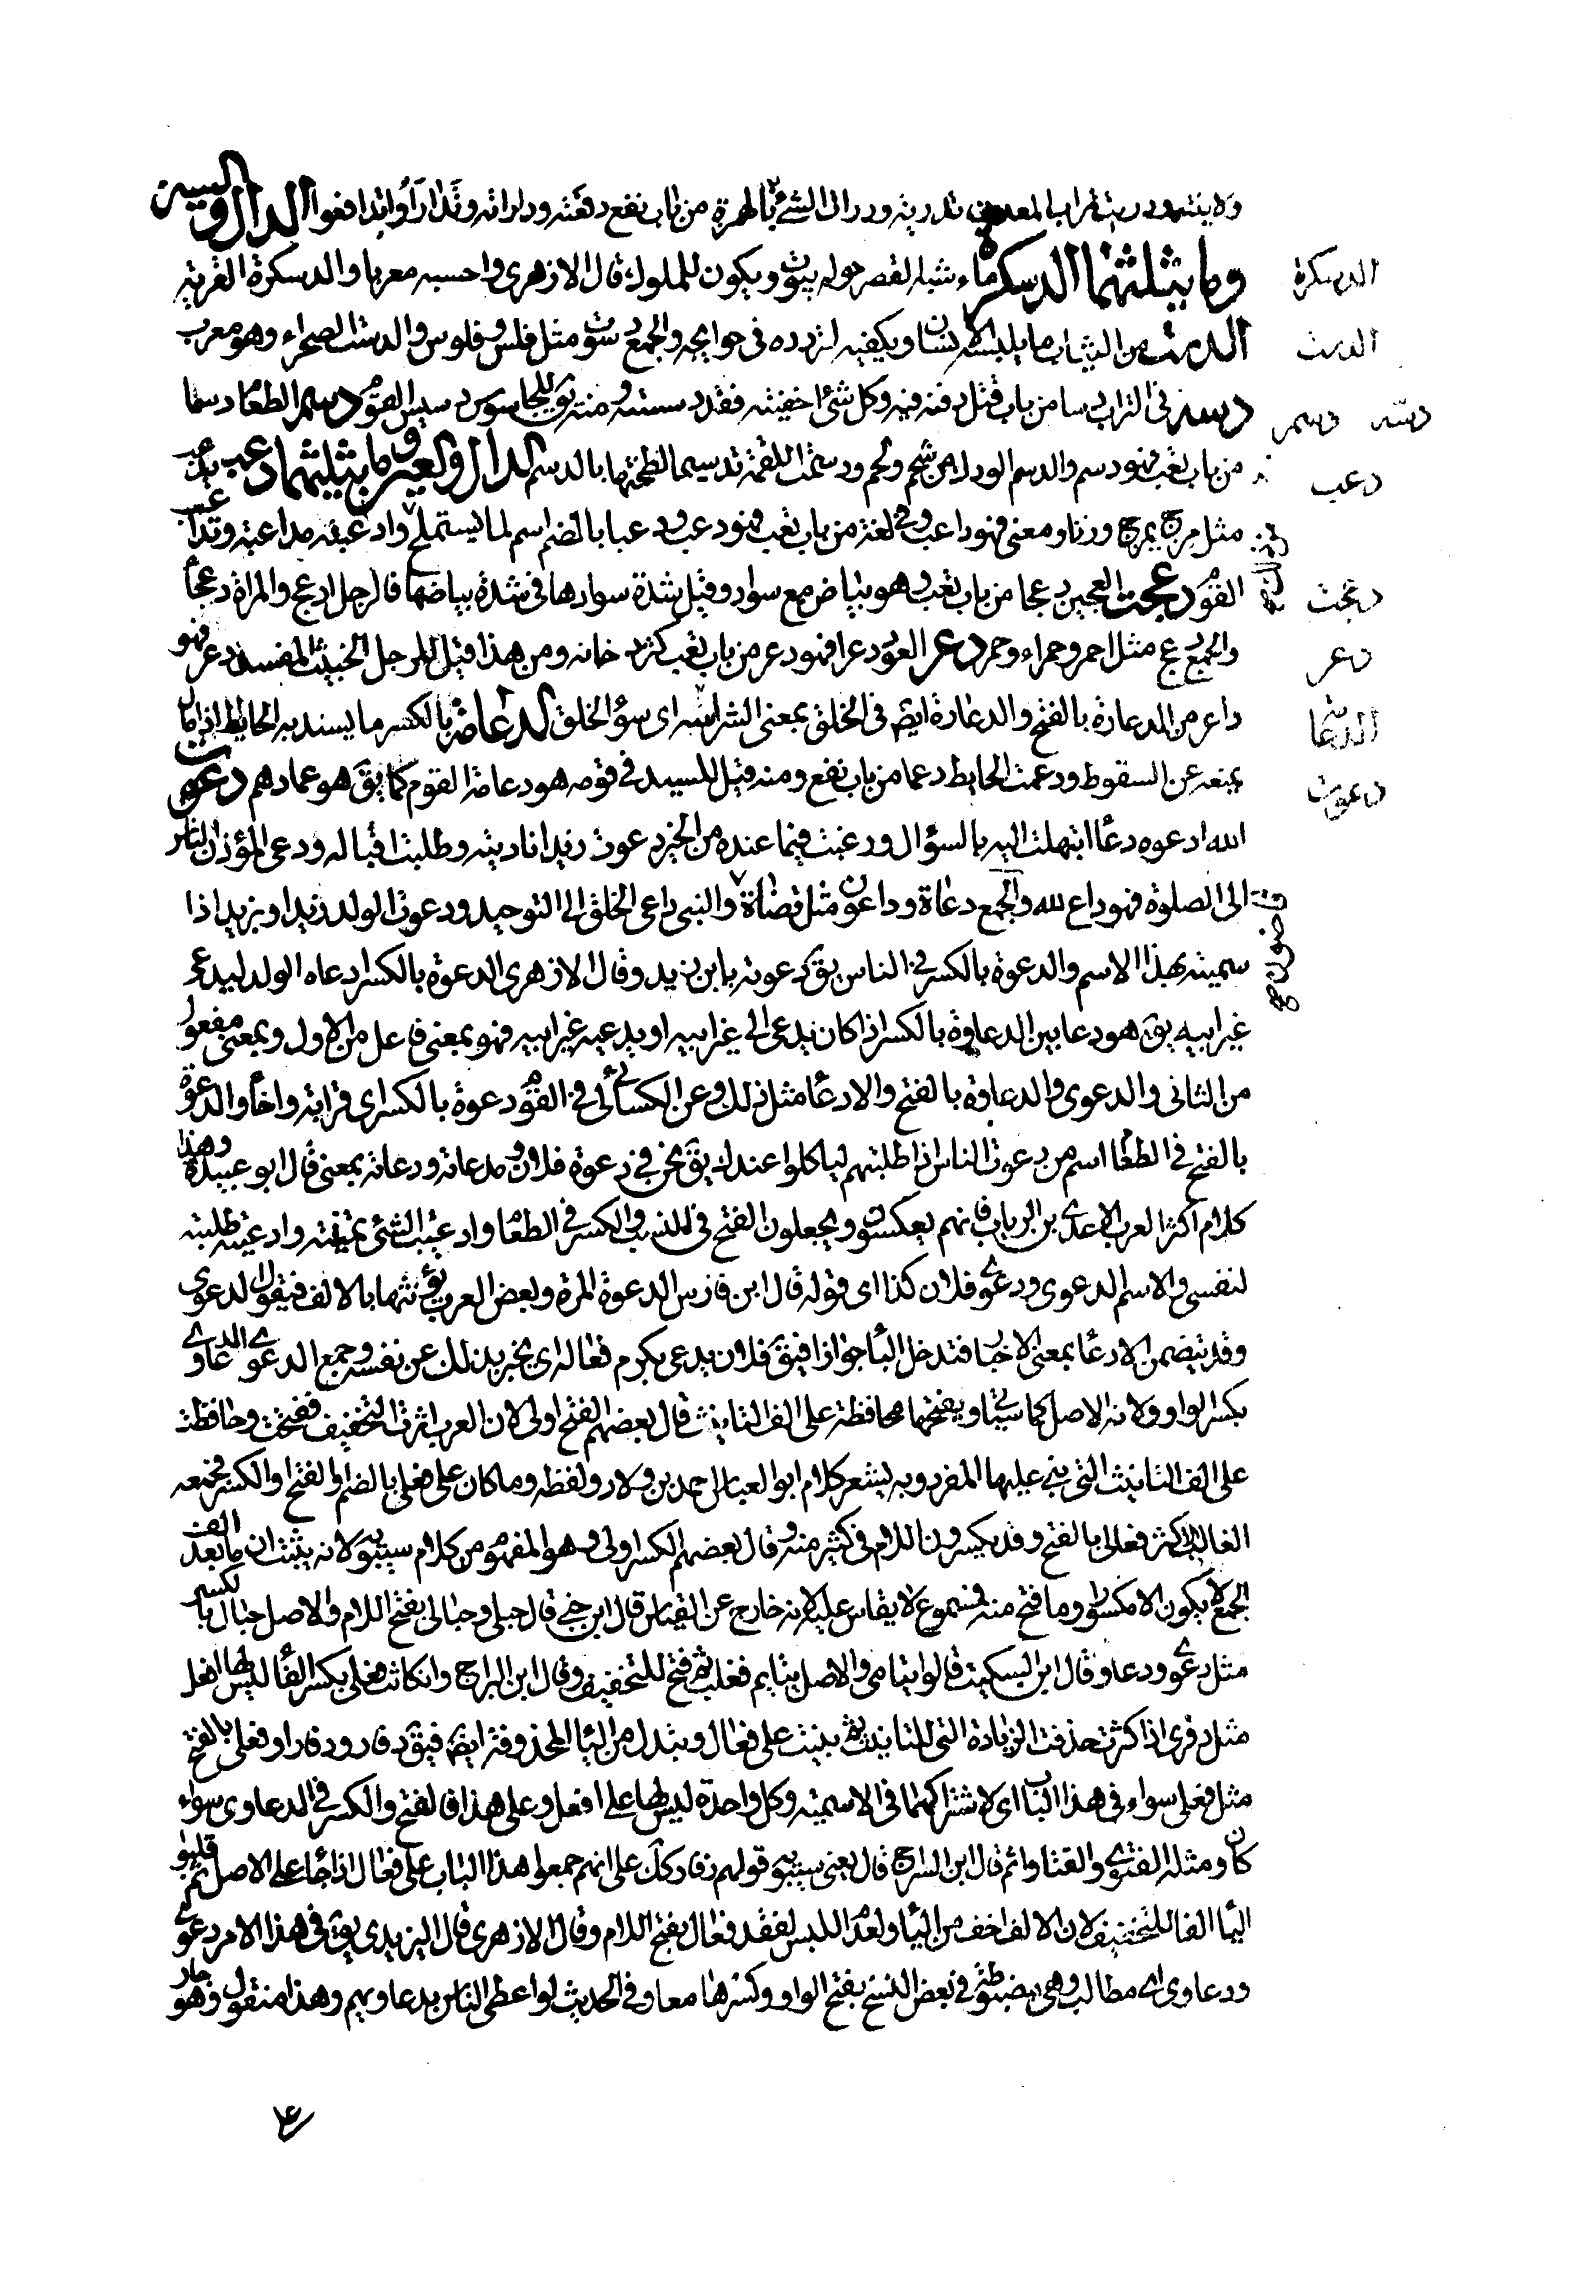 ودريت تراب المعدن تدرية ودرات الشئ بالهمزة من باب نفع دفعته ودارأته وتدارأوا تدافعوا الدال والسين
وما يثلثهما الدسكرة بناء شبه القصر حوله بيوت ويكون للملوك قال الازهرى واحسبه معربا والدسكرة القرية
الدست من الثياب ما يلبسه الانسان ويكفيه لتردده فى حوايجه والجمع دسوت مثل فلس وفلوس والدست الصحراء وهو معرب
دسه فى التراب دسا من باب قتل دفنه فيه وكل شئ اخفيته فقد دسسته ومنه يق للجاسوس دسيس القوم دسم الطعام دسما
من باب تعب فهو دسم والدسم الودك من شحم ولحم ودسمت اللقمة تدسيما لطختها بالدسم الدال والعين وما يثلثهما دعب يدعب
مثل مزح يمزح وزنا ومعنى فهو داعب وفى لغة من باب تعب فهو دعب والدعابة بالضم اسم لما يستملح من ذلك وداعبه مداعبة وتداعب
القوم دعجت العين دعجا من باب تعب وهو بياض مع سواد وقيل شدة سوادها فى شدة بياضها فالرجل ادعج والمراة دعجا
والجمع دعج مثل احمر وحمراء وحمر دعر العود دعرا فهو دعر من باب تعب كثر دخانه ومن هذا قيل للرجل الخبيث المفسد دعر فهو
داعر من الدعارة بالفتح والدعارة ايض فى الخلق بمعنى الشراسة اى سوء الخلق الدعامة بالكسر ما يسند به الحايط اذا مال
يمنعه عن السقوط ودعمت الحايط دعما من باب نفع ومنه قيل للسيد فى قومه هو دعامة القوم كما يق هو عمادهم دعوت
الله ادعوه دعا ابتهلت اليه بالسؤال ورغبت فيما عنده من الخير ودعوت زيدا ناديته وطلبت اقباله ودعى المؤذن الناس
الى الصلوة فهو داع لله والجمع دعاة وداعون مثل قضاة والنبى داعى الخلق الى التوحيد ودعوت الولد زيدا وبزيد اذا
سميته بهذا الاسم والدعوة بالكسر فى الناس يق دعوته بابن زيد وقال الازهرى الدعوة بالكسر ادعاه الولد ليدعى
غير ابيه يق هو دعى بين الدعاوة بالكسر اذا كان يدعى الى غير ابيه او يدعيه غير ابيه فهو بمعنى فاعل من الاول وبمعنى مفعول
من الثانى والدعوى والدعاوة بالفتح والادعا مثل ذلك وعن الكسائى لى فى القوم دعوة بالكسر اى قرابة واخا والدعوة
بالفتح فى الطعام اسم من دعوت الناس اذا طلبتهم لياكلوا عندك يق نحن فى دعوة فلان ومدعاته ودعاته بمعنى قال ابو عبيدة وهذا
كلام اكثر العرب الا عدى بن الرباب فانهم يعكسون ويجعلون الفتح فى النسب والكسر فى الطعام وادعيت الشئ تمنيته وادعيته طلبته
لنفسى والاسم الدعوى ودعوى فلان كذا اى قوله قال ابن فارس الدعوة المرة وبعض العرب يؤنثها بالالف فيقول الدعوى
وقد يتضمن الادعا بمعنى الاخبار فتدخل البا جوازا فيق فلان يدعى بكرم فعاله اى يخبر بذلك عن نفسه وجمع الدعوى الدعاوى
بكسر الواو ولانه الاصل كما سياتى وبفتحها محافظة على الف التانيث قال بعضهم الفتح اولى لان العرب اثرت التخفيف ففتحت وحافظت
على الف التانيث التى بنى عليها المفرد وبه يشعر كلام ابو العباس احمد بن ولاد ولفظه وما كان على فعلى بالضم او الفتح او الكسر فجمعه
الغالب الاكثر فعالى بالفتح وقد يكسرون اللام فى كثير منه وقال بعضهم الكسر اولى وهو المفهوم من كلام سيبويه لانه يثبت ان ما بعد الف
الجمع لا يكون الا مكسورا وما فتح منه فمسموع لا يقاس عليه لانه خارج عن القياس قال ابن جنى قال حبلى وحبالى بفتح اللام والاصل حبال بالكسر
مثل دعوى ودعاو وقال ابن السكيت قالوا يتامى والاصل يتايم فقلب ثم فتح للتخفيف وقال ابن السراج وان كانت فعلى بكسر الفا ليس لها افعل
مثل ذفرى اذا كثرت حذفت الزيادة التى للتانيث ثم بنيت على فعال وتبدل من اليا المحذوفة ايض فيق ذفار وذفارا وفعلى بالفتح
مثل فعلى سواء فى هذا الباب اى لاشتراكهما فى الاسمية وكل واحدة ليس لها على افعل وعلى هذا فالفتح والكسر فى الدعاوى سواء
كان ومثله الفتوى والفتاوى ثم قال ابن السراج قال يعنى سيبويه قولهم ذفار دلك على انهم جمعوا هذا الباب على فعال اذ جا على الاصل ثم قلبوا
اليا الفا للتخفيف لان الالف اخف من اليا ولعدم اللبس لفقد فعالل بفتح اللام وقال الازهرى قال اليزيدى يق فى هذا الامر دعوى
ودعاوى اى مطالب وهى مضبوطة فى بعض النسخ بفتح الواو وكسرها معا وفى الحديث لو اعطى الناس بدعاويهم وهذا منقول وهو جار
الدسكرة
الدست
دسه دسم
دعب
دعجت
دعر
الدعامة
دعوت